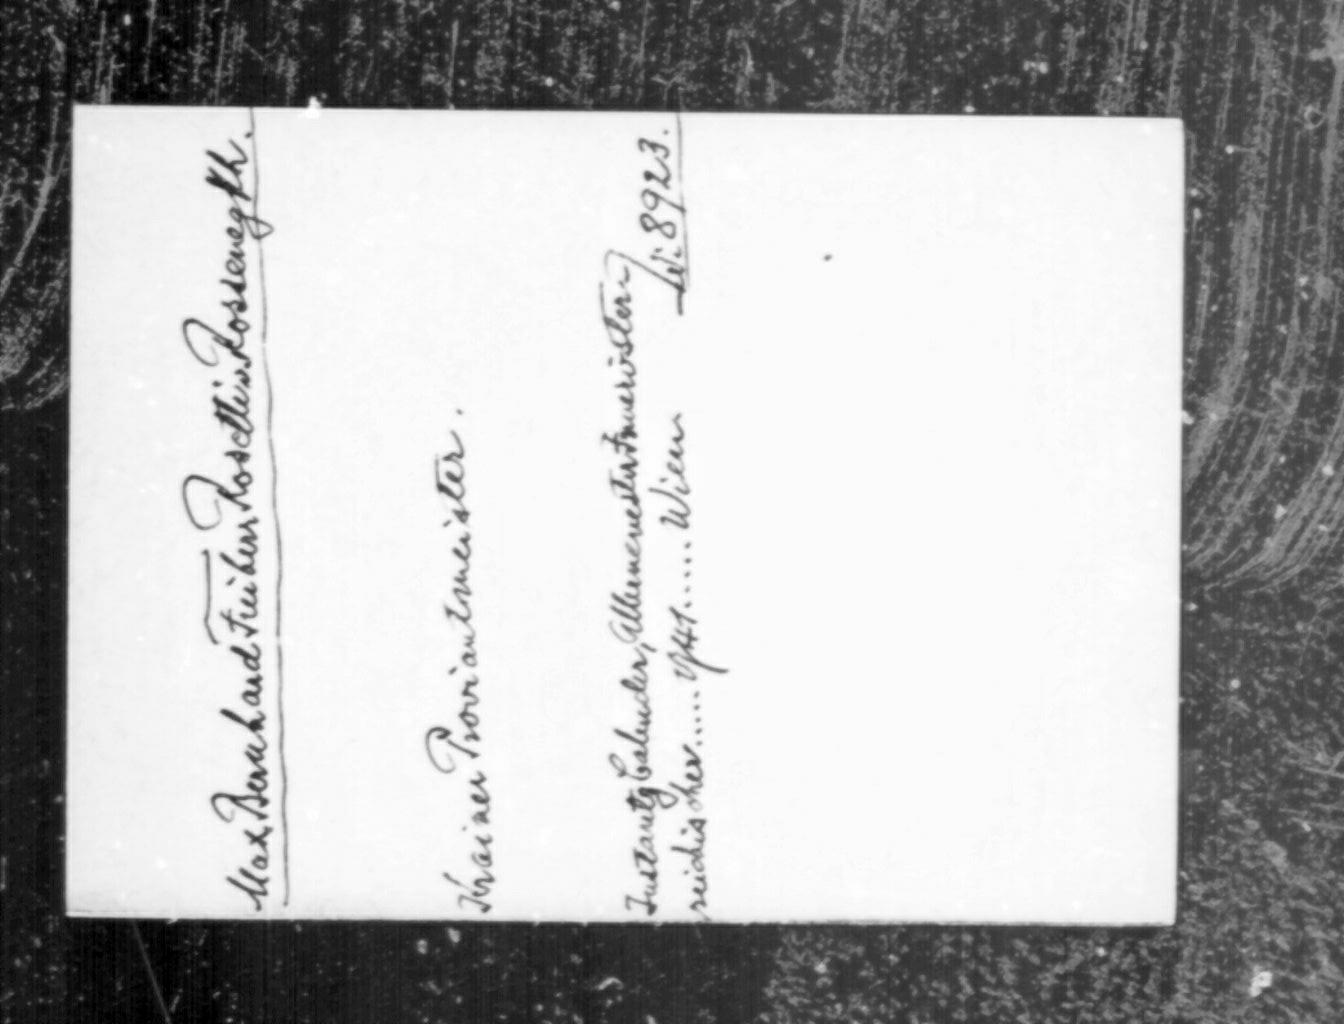 Max Bernhard Freiherr Rosetti v. Rossenegkh.
Krainer Proviantmeister.
Instantz Calender, Allerneuester österreichischer ..... 1741 ..... Wien
8923.